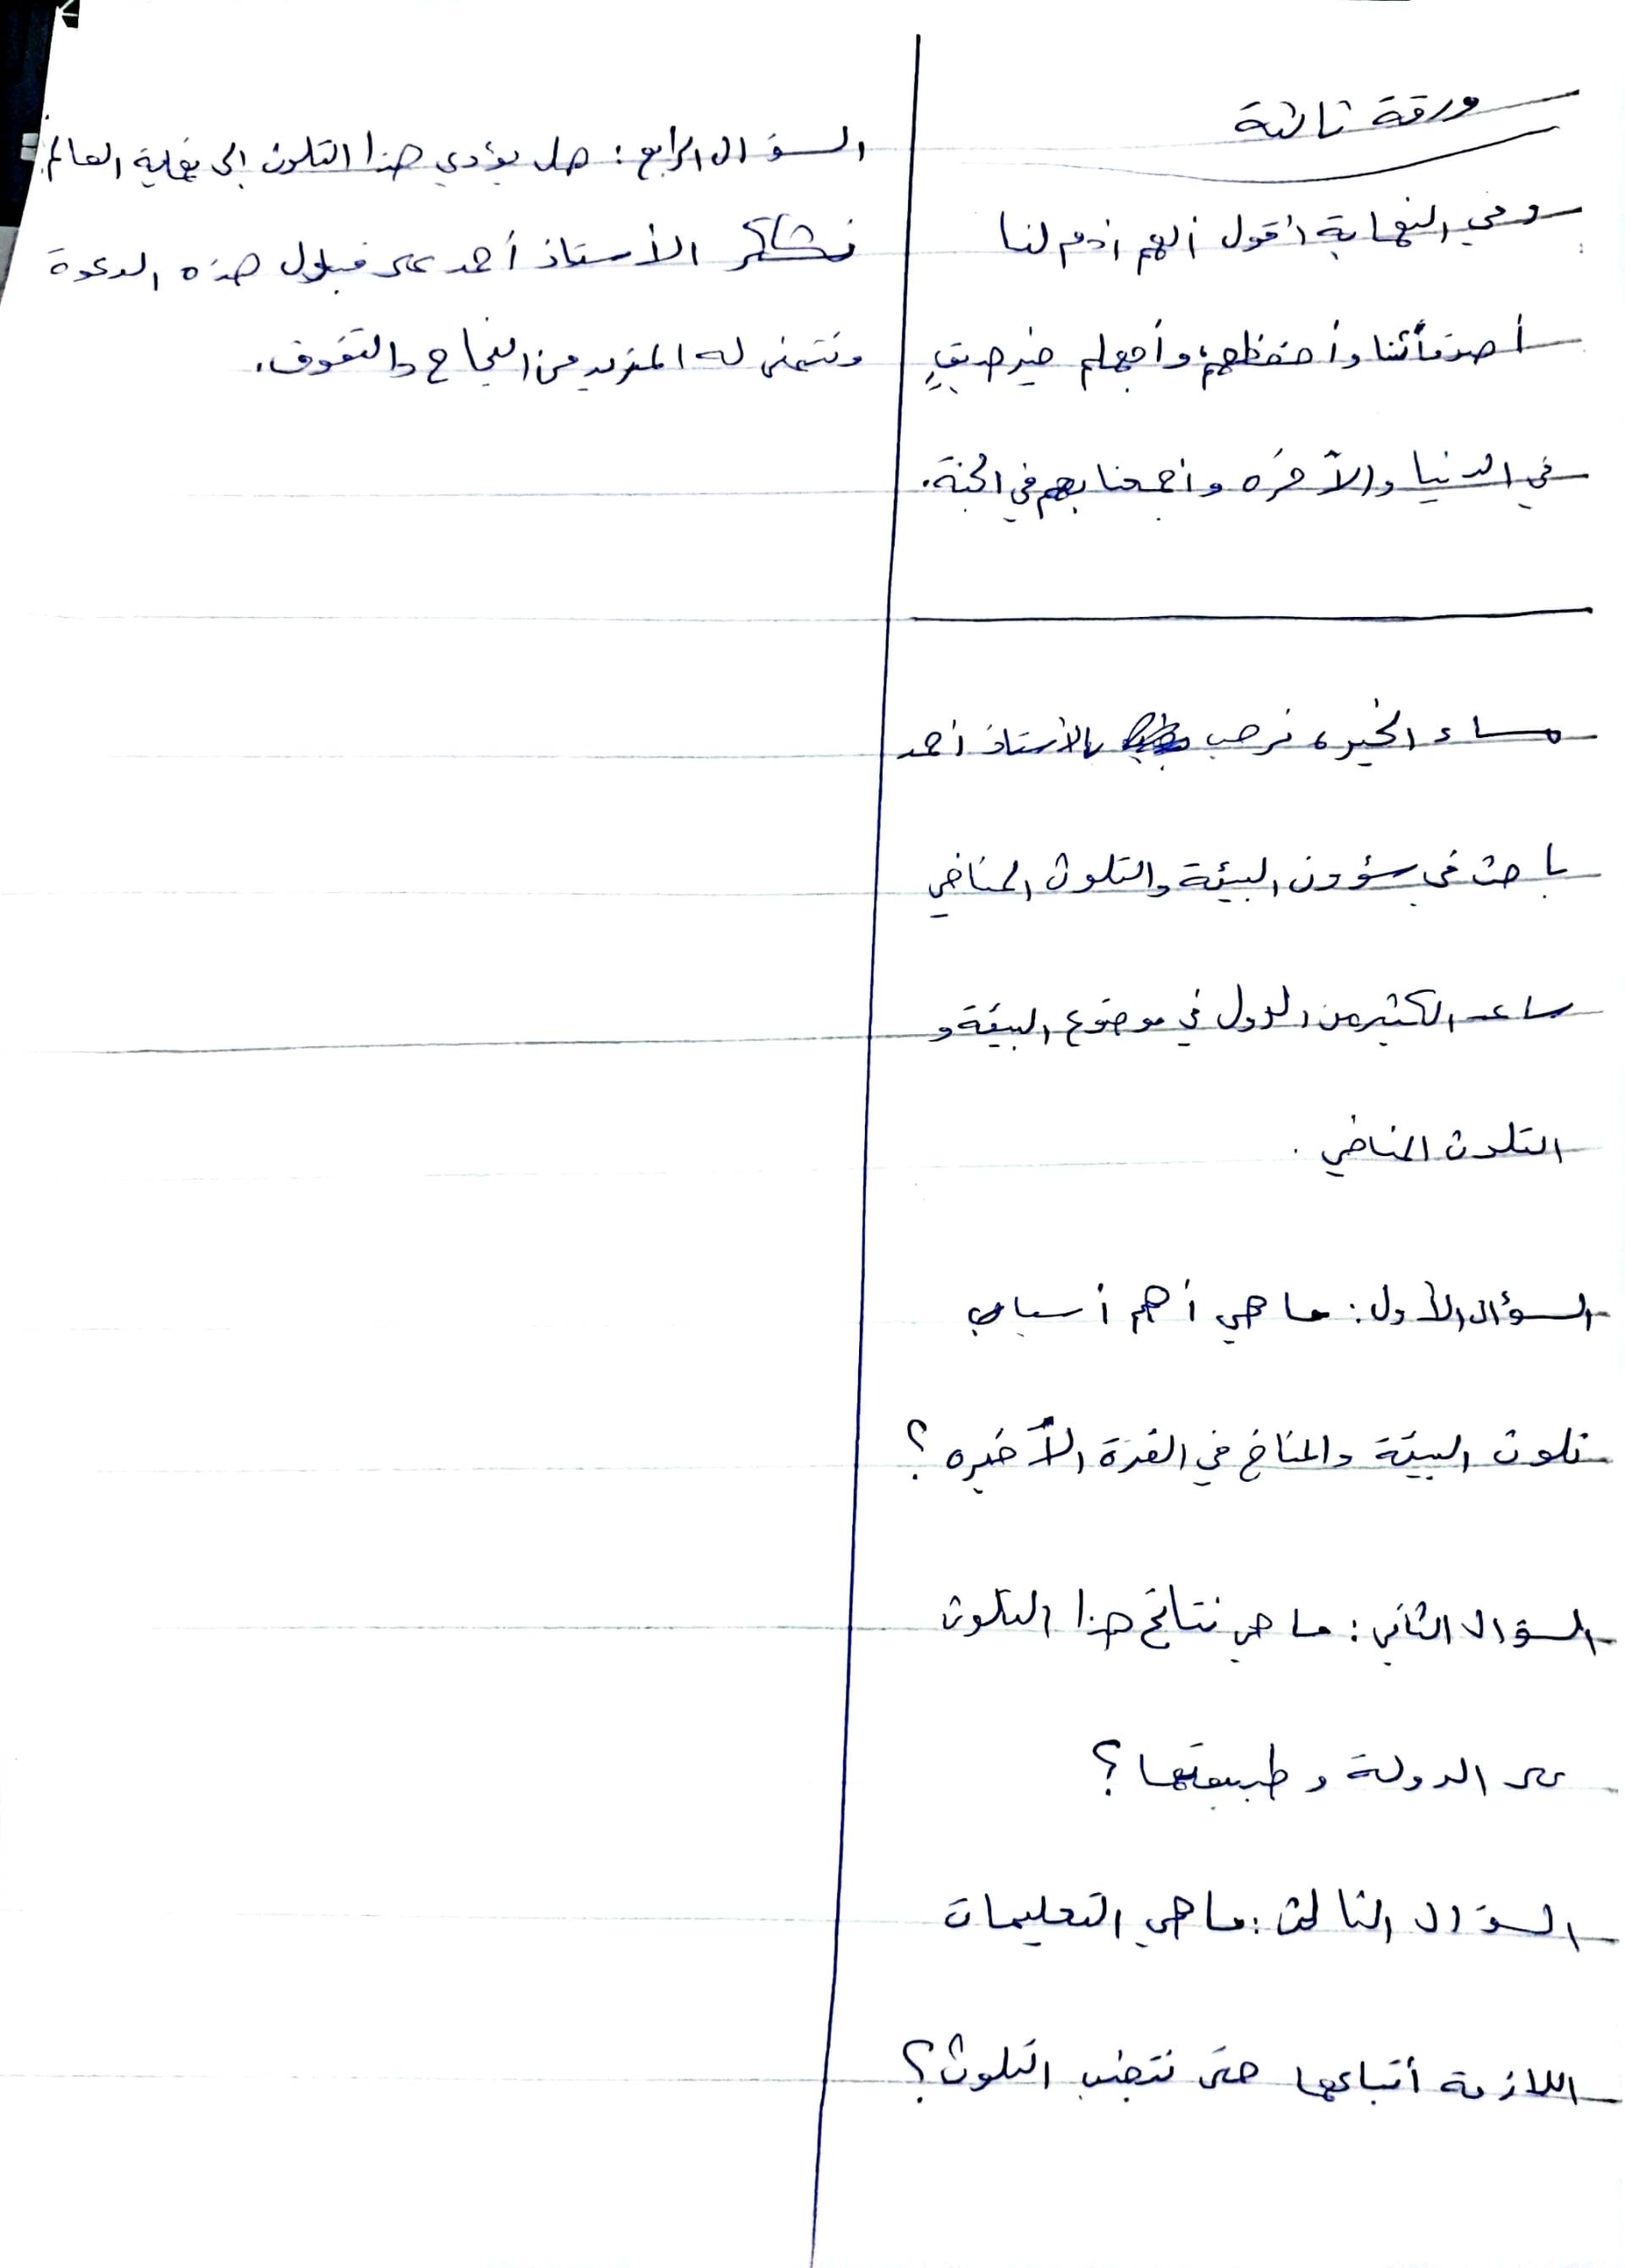 ورقة ثالثة
وفي النهاية أقول ألهم أدم لنا
أصدقأئنا وأحفظهم، وأجعلهم خير صديقٍ
في الدنيا والأخره وأجمعنا بهم في الجنة.
مساء الخير، نرحب بالأستاذ أحمد
باحث في شؤون البيئة والتلوث المناخي
ساعد الكثير من الدول في موضوع البيئة و
التلوث المناخي.
السؤال الأول: ما هي أهم أسباب
تلوث البيئة والمناخ في الفترة الأخيره؟
السؤال الثاني: ما هي نتائج هذا التلوث
على الدولة وطبيعتها؟
السؤال الثالث: ما هي التعليمات
اللازمة أتباعها حتى نتجنب التلوث؟
السؤال الرابع: هل يؤدي هذا التلوث إلى نهاية العالم
نشكر الأستاذ أحمد على قبول هذه الدعوة
ونتمنى له المزيد من النجاح والتفوق.